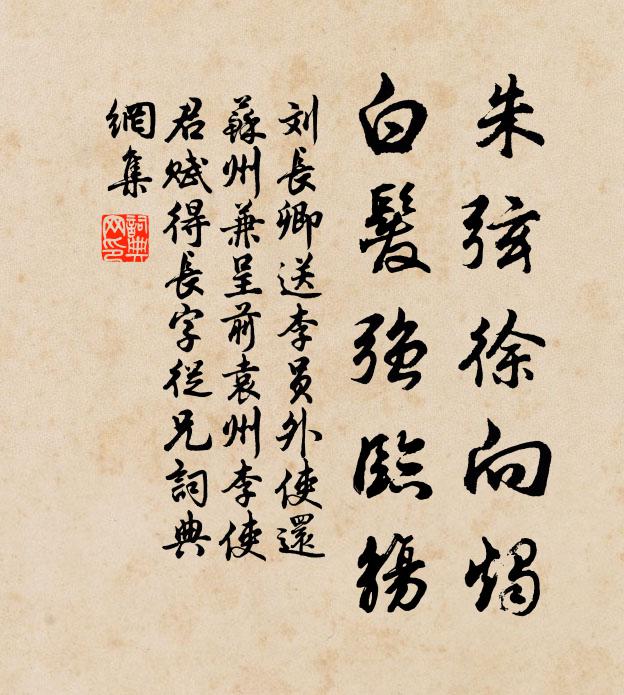 朱弦徐向燭
白髮強臨觴
刘長卿送李員外使還
蘇州兼呈前袁州李使
君賦得長字從兄詞典
網集
詞典網印